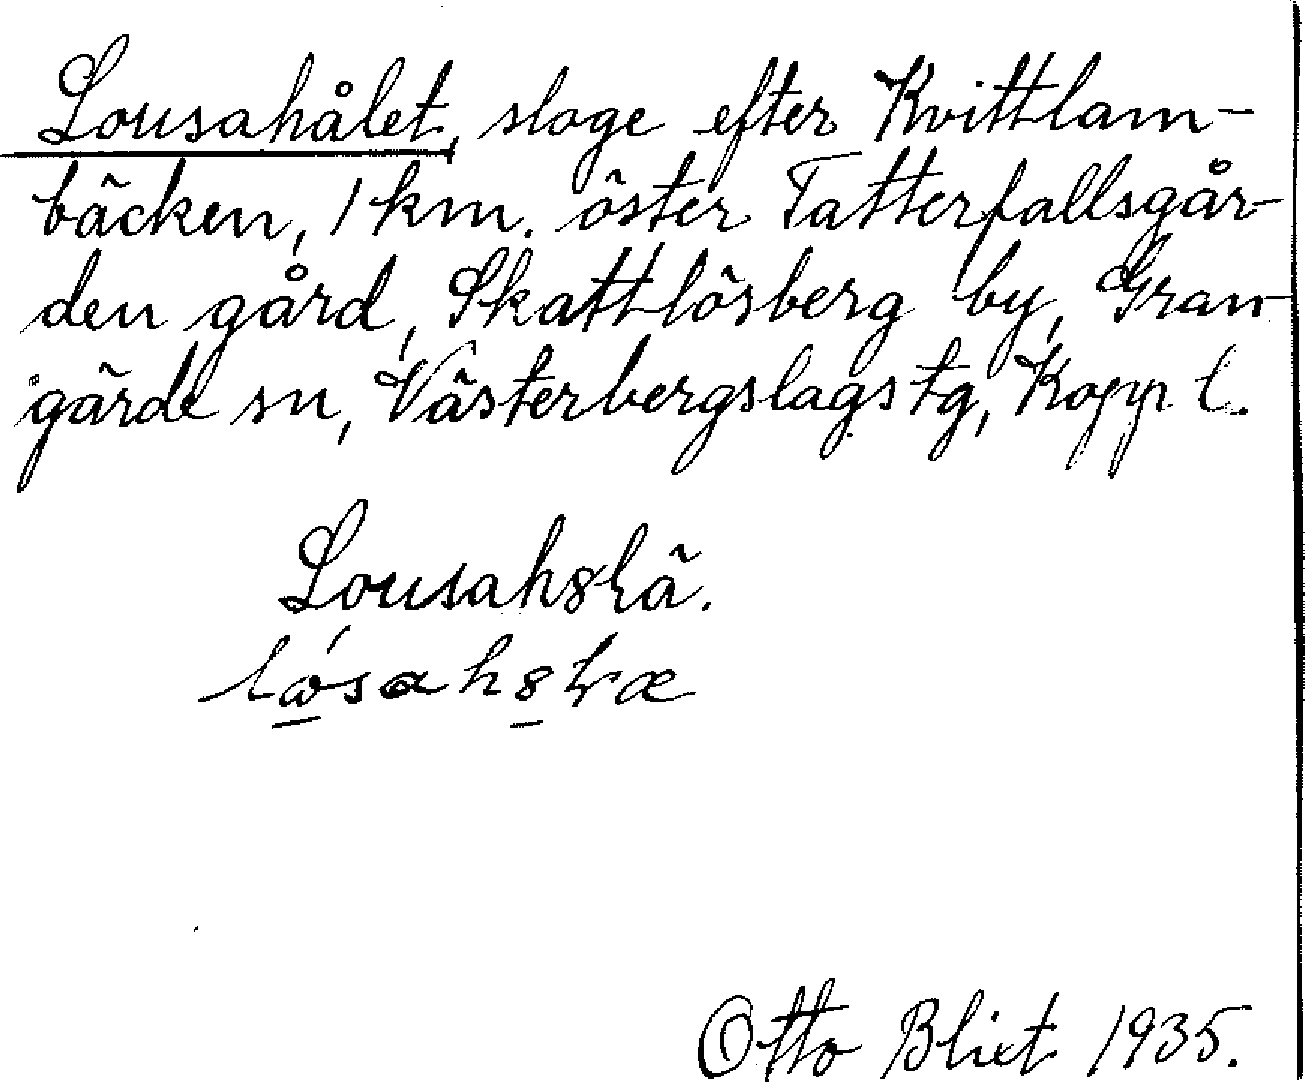 Lousahålet, sloge efter Kvittlam-
bäcken, 1 km. öster Tatterfallsgår-
den gård, Skattlösberg by, Gran-
gärde sn, Västerbergslags tg, Kopp l.
Otto Blixt 1935.